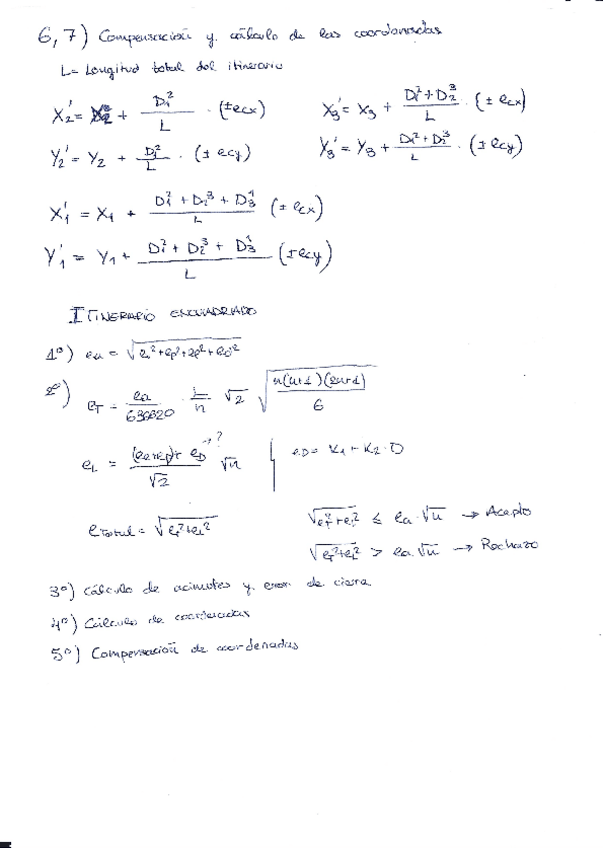 6,7) Compensación y cálculo de las coordenadas
L= Longitud total del itinerario
X₂' = X₂ + D₁²/L · (±ecx)
X₃' = X₃ + (D₁²+D₂³)/L · (±ecx)
Y₂' = Y₂ + D₁²/L · (±ecy)
Y₃' = Y₃ + (D₁²+D₂³)/L · (±ecy)
X₁' = X₁ + (D₁²+D₂³+D₃¹)/L (±ecx)
Y₁' = Y₁ + (D₁²+D₂³+D₃¹)/L (±ecy)
ITINERARIO ENCUADRADO
1º) ea = √
2º)
eT = ea/636620 · L/n √2 √(n(n+1)(2n+1)/6)
eL = eD →?/√2 √n
eD = K₁ + K₂·D
eTotal = √(eT²+eL²)
√(eT²+eL²) ≤ ea·√n → Acepto
√(eT²+eL²) > ea·√n → Rechazo
3º) Cálculo de acimutes y error de cierre
4º) Cálculo de coordenadas
5º) Compensación de coordenadas